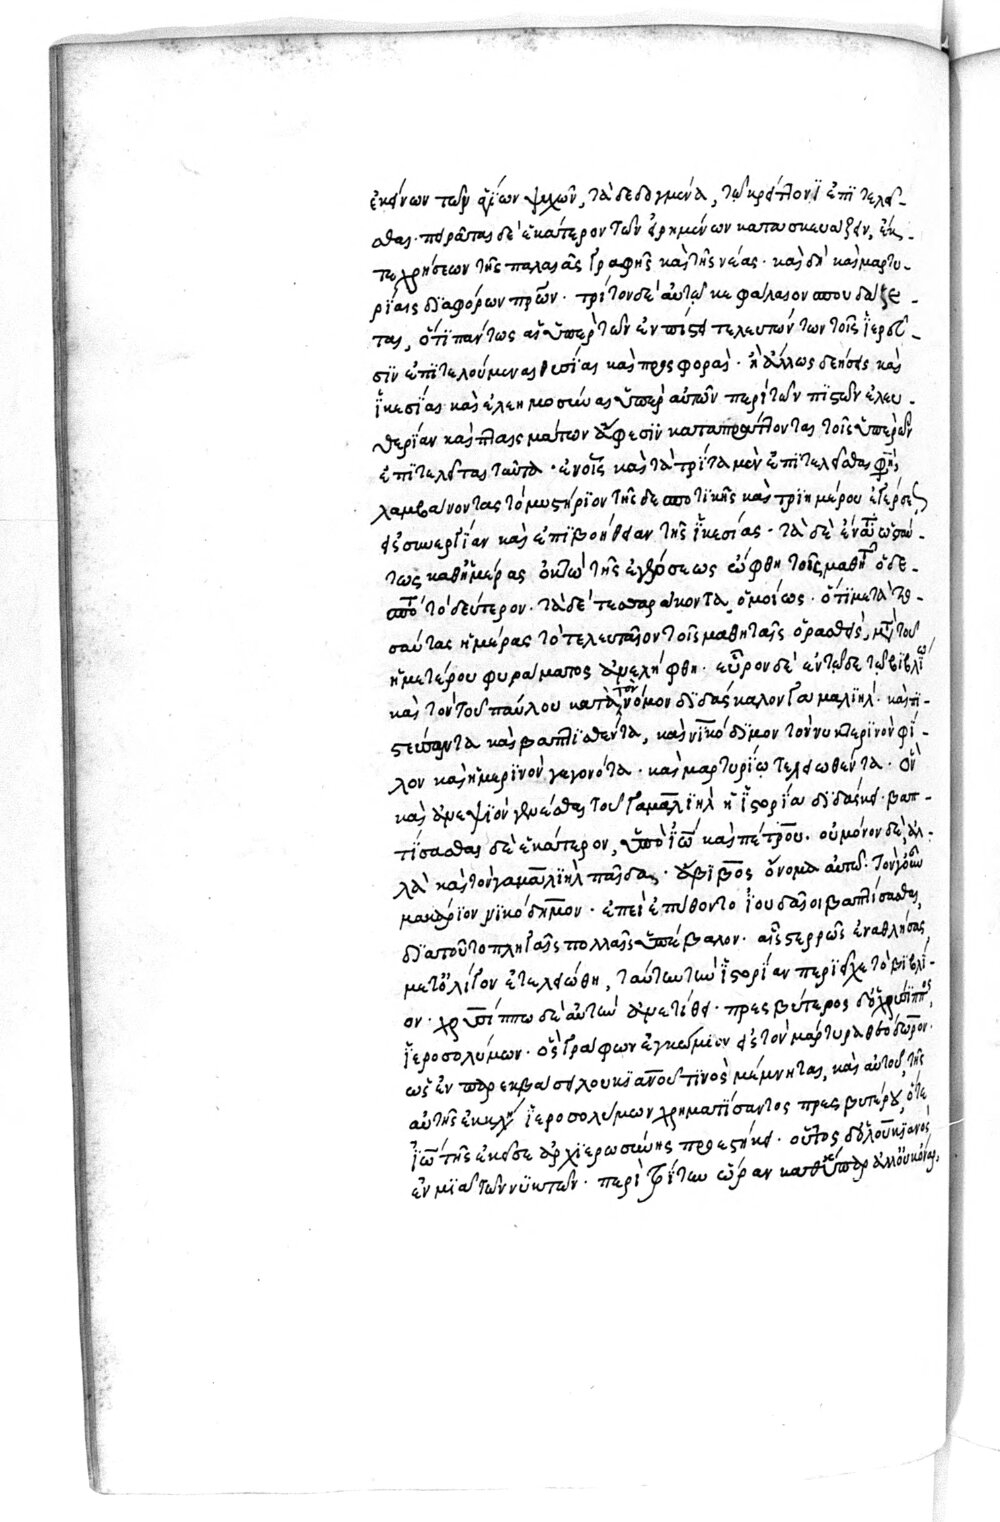 ἐκείνων τῶν ἁγίων ψυχῶν, τὰ δεδογμένα, τῶ κρείττονϊ ἐπϊτελεῖ-
σθαι· πειρᾶται δὲ ἑκάτερον τῶν εἰρημένων κατασκευάζειν, ἐκ
τε χρήσεων τῆς παλαιᾶς γραφῆς καὶ τῆς νέας· καὶ δὴ καὶ μαρτυ-
ρΐαις δϊαφόρων πρ̅ων· τρίτον δὲ αὐτῶ κεφάλαιον σπουδάζε-
ται, ὅτϊ πάντως αἱ ὑπὲρ τῶν ἐν πίστει τελευτώντων τοῖς ἱερεῦ-
σϊν ἐπϊτελούμεναι θυσΐαι καὶ προσφοραὶ· ἢ ἄλλως δεήσεις καὶ
ἱκεσΐαι καὶ ἐλεημοσύναι ὑπὲρ αὐτῶν περὶ τῶν πϊστῶν ἐλευ-
θερίαν καὶ πταισμάτων ἄφεσϊν καταπράττονται τοῖς ὑπὲρ ὧν
ἐπϊτελεῖται ταῦτα· ἐν οἷς καὶ τὰ τρΐτα μὲν ἐπϊτελεῖσθαι φη̅σι,
λαμβάνοντας τὸ μυστήρϊον τῆς δεσποτϊκῆς καὶ τρϊημέρου ἐγέρσε
εἰς συνεργΐαν καὶ ἐπϊβοήθειαν τῆς ἱκεσίας· τὰ δὲ ἔνατ̅ ὡσαύ-
τως καθ' ἡμέρας ὀκτὼ τῆς ἐγέρσεως ὤφθη τοῖς μαθητ̅ ὁ δε-
σπότ̅ τὸ δεύτερον· τὰ δὲ τεσσαράκοντα ὁμοίως· ὅτϊ μετὰ το-
σαύτας ἡμέρας τὸ τελευταῖον τοῖς μαθηταῖς ὁραθεὶς, μετ̅ τοῦ
ἡμετέρου φυράματος ἀνελήφθη· εὗρον δὲ ἐν τῶδε τῶ βϊβλΐω
καὶ τὸν τοῦ παύλου κατὰ τὸν νόμον δϊδάσκαλον γαμαλϊὴλ· καὶ πϊ-
στεύσαντα καὶ βαπτϊσθέντα, καὶ νϊκόδϊμον τὸν νυκτερϊνὸν φΐ-
λον καὶ ἡμερϊνὸν γεγονότα· καὶ μαρτυρίω τελειωθέντα· ὃν
καὶ ἀνεψϊὸν γενέσθαι τοῦ γαμαλ̅ϊὴλ ἡ ἱστορΐα δϊδάσκει· βαπ-
τίσασθαι δὲ ἑκάτερον, ὑπὸ ϊω̅ καὶ πέτρου. οὐ μόνον δὲ, ἀλ-
λὰ καὶ τὸν γαμαλ̅ϊὴλ παῖδα· ἄβϊβος ὄνομα αὐτῶ· τὸν γοῦν
μακάρϊον νϊκόδημον· ἐπεὶ ἐπύθοντο ϊουδαῖοι βαπτίσασθαι,
δϊὰ τοῦτο πληγαῖς πολλαῖς ὑπέβαλον· αἷς στερρῶς ἐναθλήσας
μετ' ὀλΐγον ἐτελειώθη, ταύτην τὴν ἱστορΐαν περϊεῖχε τὸ βϊβλΐ-
ον· χρυσΐππω δὲ αὐτὴν ἀνετίθει· πρεσβύτερος δ' ὁ χρύσϊππος
ἱεροσολύμων· ὃς γράφων ἐγκώμϊον εἰς τὸν μάρτυρα θεόδωρον·
ὡς ἐν παρεκβάσει λουκϊανοῦ τϊνὸς μέμνηται, καὶ αὐτοῦ τῆς
αὐτῆς ἐκκλη̅ ἱεροσολύμων χρηματΐσαντος πρεσβυτέρου, ὅτε
ϊω̅ τῆς ἐκεῖσε ἀρχϊερωσύνης προεστήκει· οὗτος δ' ὁ λουκϊανὸς
ἐν μϊᾶ τῶν νϋκτῶν· περὶ τρΐτην ὥραν καθ' ὕπαρ ἀλλ' οὐκ ὄναρ,